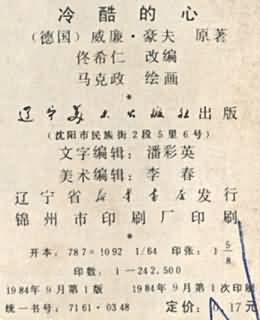 冷酷的心
(德国)威廉·豪夫 原著
佟希仁 改编
马克政 绘画
*
辽宁美术出版社出版
(沈阳市民族街2段5里6号)
文字编辑：潘彩英
美术编辑：李春
辽宁省新华书店发行
锦州市印刷厂印刷
*
开本：787×1092 1/64 印张：1 5/8
印数：1—242,500
1984年9月第1版 1984年9月第1次印刷
统一书号：7161·0348 定价：0.17元